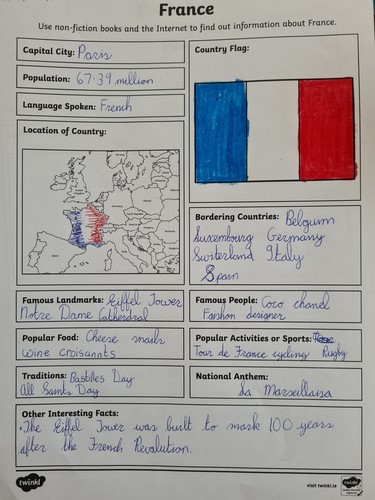 France
Use non-fiction books and the Internet to find out information about France.
Capital City: Paris
Country Flag:
Population: 67.39 million
Language Spoken: French
Location of Country:
Bordering Countries: Belguim
Luxembourg Germany
Switerland Italy
Spain
Famous Landmarks: Eiffel Tower
Notre Dame Cathedral
Famous People: Coco chanel
Fashion designer
Popular Food: Cheese snails
wine croisannts
Popular Activities or Sports:
Tour de France cycling Rugby
Traditions: Bastilles Day
All Saints Day
National Anthem:
La Marseillaisa
Other Interesting Facts:
•The Eiffel Tower was built to mark 100 years
after the French Revolution.
twinkl
visit twinkl.ie